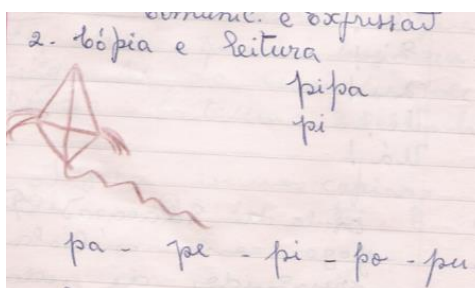 Comunic. e Expressão
2. Cópia e leitura
pipa
pi
pa - pe - pi - po - pu